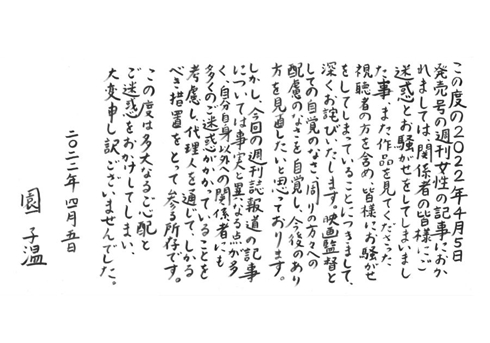 この度の2022年4月5日
発売号の週刊女性の記事におか
れましては、関係者の皆様にご
迷惑とお騒がせをしてしまいまし
た事、また作品を見てくださった
視聴者の方を含め、皆様にお騒がせ
をしてしまっていることにつきまして、
深くお詫びいたします。映画監督と
しての自覚のなさ、周りの方々への
配慮のなさを自覚し、今後のあり
方を見直したいと思っております。
しかし、今回の週刊誌報道の記事
については事実と異なる点が多
く、自分自身以外への関係者にも
多くのご迷惑がかかっていることを
考慮し、代理人を通じて、しかる
べき措置をとって参る所存です。
この度は多大なるご心配と
ご迷惑をおかけしてしまい、
大変申し訳ございませんでした。
二〇二二年四月五日
園子温